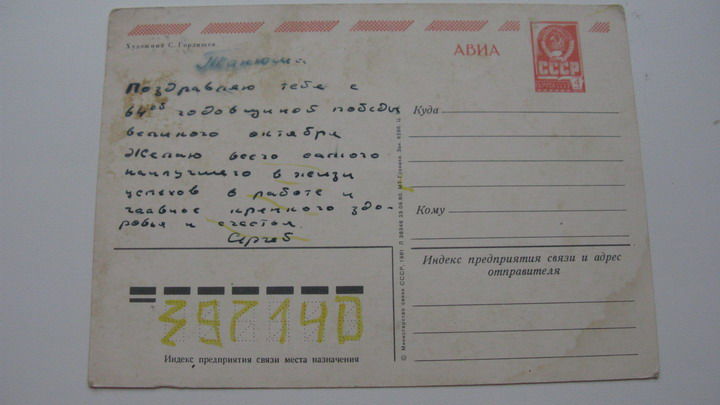 Художник С. Горлищев
АВИА
СССР
4
Танюша
Поздравляю тебя с
64ой годовщиной победы
великого октября
Желаю всего самого
наилучшего в жизи
успехов в работе и
главное крепкого здо-
ровья и счастья
Сергей
Куда
Кому
Индекс предприятия связи и адрес
отправителя
397140
Индекс предприятия связи места назначения
© Министерство связи СССР, 1981